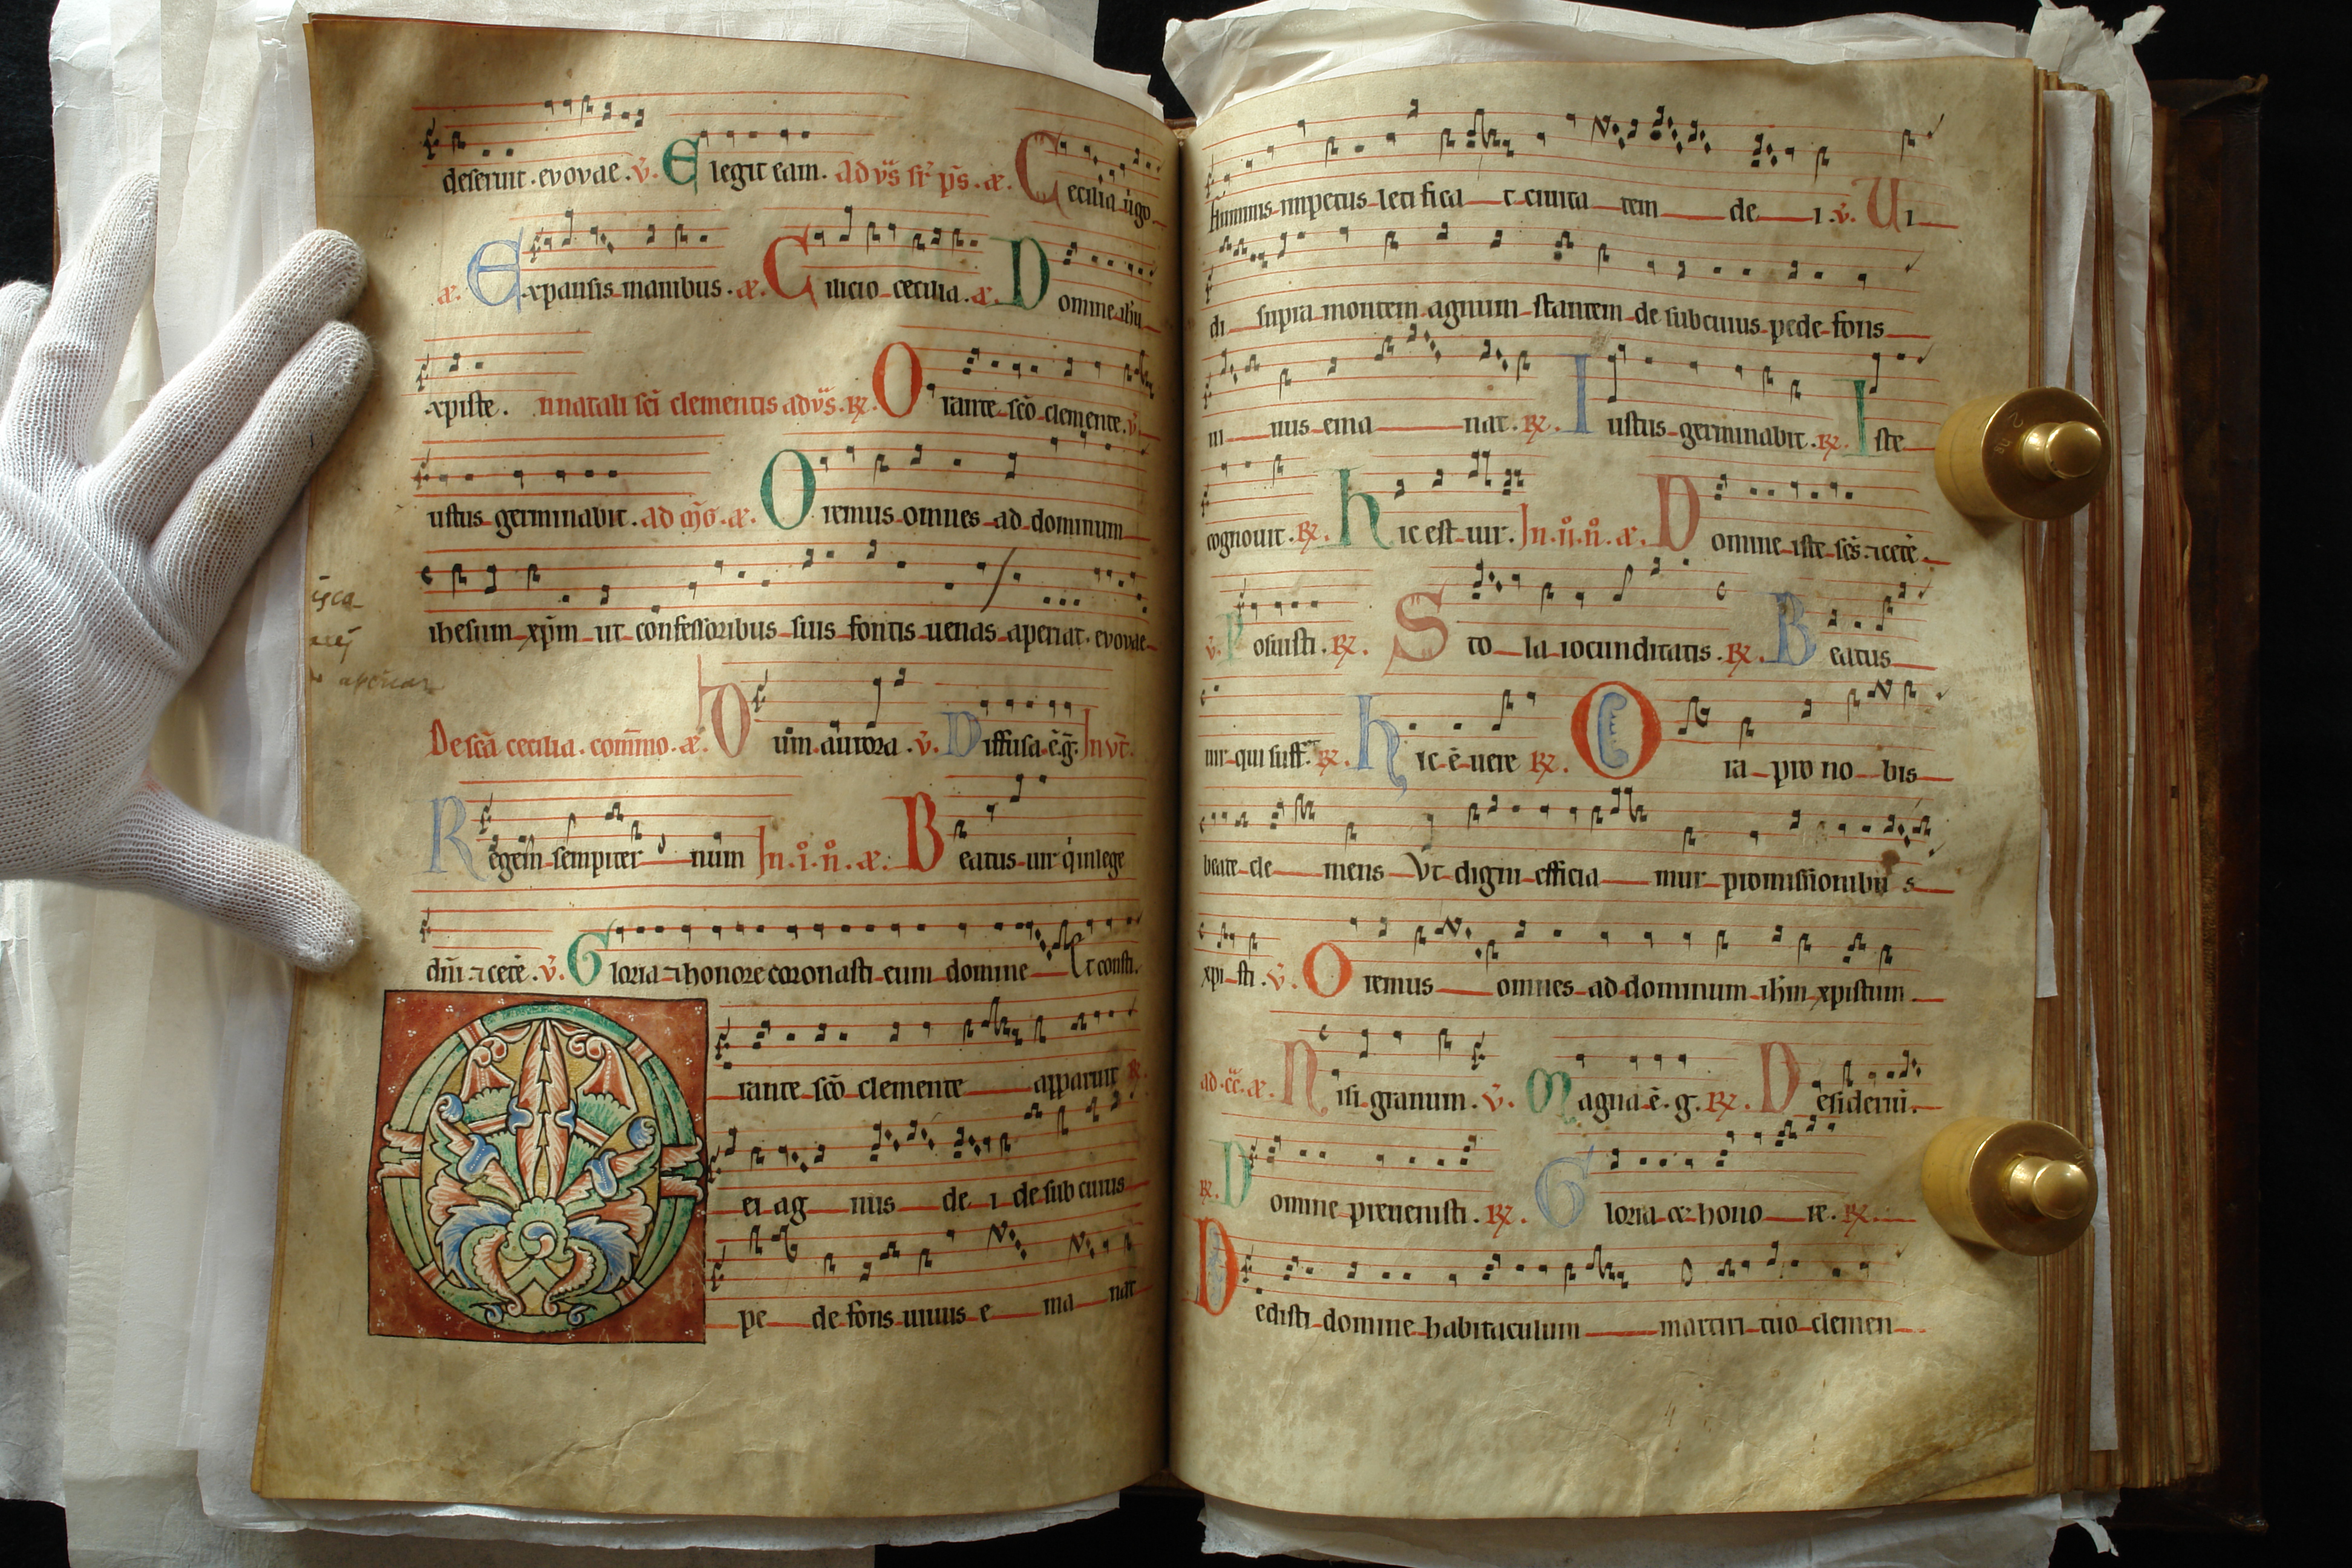 deseruit . evovae . v̄. Elegit eam . ad vs̄ . æ. Cecilia ūgo
æ. Expansis manibus . æ. Cilicio cecilia . æ. Domine ihu
xpiste . In natali sc̄i clementis ad vs̄ . ℟. Orante sc̄o clemente . v̄.
iustus germinabit . ad . æ. Oremus omnes ad dominum
ihesum xp̄m ut confessoribus suis fontis uenas aperiat . evovae
aperiat
De sc̄a cecilia . com̄mo . æ. Dum aurora . v̄. Diffusa . ē . g̅. Inv̄t.
Regem sempiternum In . i . n̊ . æ. Beatus uir q̇ in lege
dn̄i ⁊ cete . v̄. Gloria ⁊ honore coronasti eum domine Et consti.
Orante sc̄o clemente apparuit ℟.
ei agnus dei de sub cuius
pede fons uiuus emanat
fluminis impetus letificat ciuitatem dei . v̄. Ui
di supra montem agnum stantem de sub cuius pede fons
uiuus emanat . ℟. Iustus germinabit . ℟. Iste
cognouit . ℟. Hic est uir . In . ii . n̊ . æ. Domine iste sc̄s ⁊ cete .
v̄. Posuisti . ℟. Stola iocunditatis . ℟. Beatus
uir qui suff . ℟. Hic ē uere ℟. Ora pro nobis
beate clemens Vt digni efficiamur promissionibus
xpisti . v̄. Oremus omnes ad dominum ih̄m xpistum
ad . cc̄ . æ. Nisi granum . v̄. Magna ē . g . ℟. Desideriū .
℟. Domine preuenisti . ℟. Gloria et honore . ℟.
Dedisti domine habitaculum martiri tuo clemen